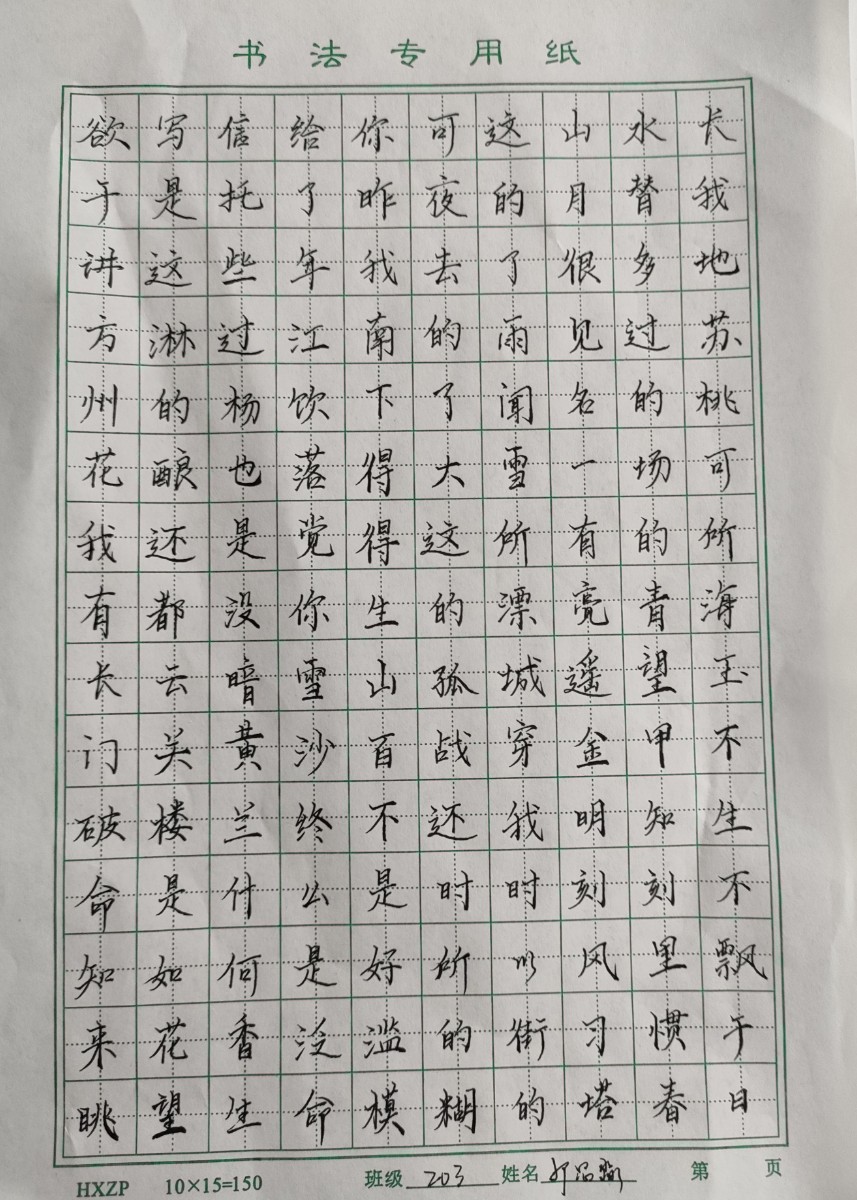 书法专用纸
欲写信给你可这山水长
于是托了昨夜的月替我
讲这些年我去了很多地
方淋过江南的雨见过苏
州的杨饮下了闻名的桃
花酿也落得大雪一场可
我还是觉得这所有的所
有都没你生的漂亮青海
长云暗雪山孤城遥望玉
门关黄沙百战穿金甲不
破楼兰终不还我明知生
命是什么是时时刻刻不
知如何是好所以风里飘
来花香泛滥的街习惯于
眺望生命模糊的塔春日
HXZP 10×15=150 班级 203 姓名 第 页